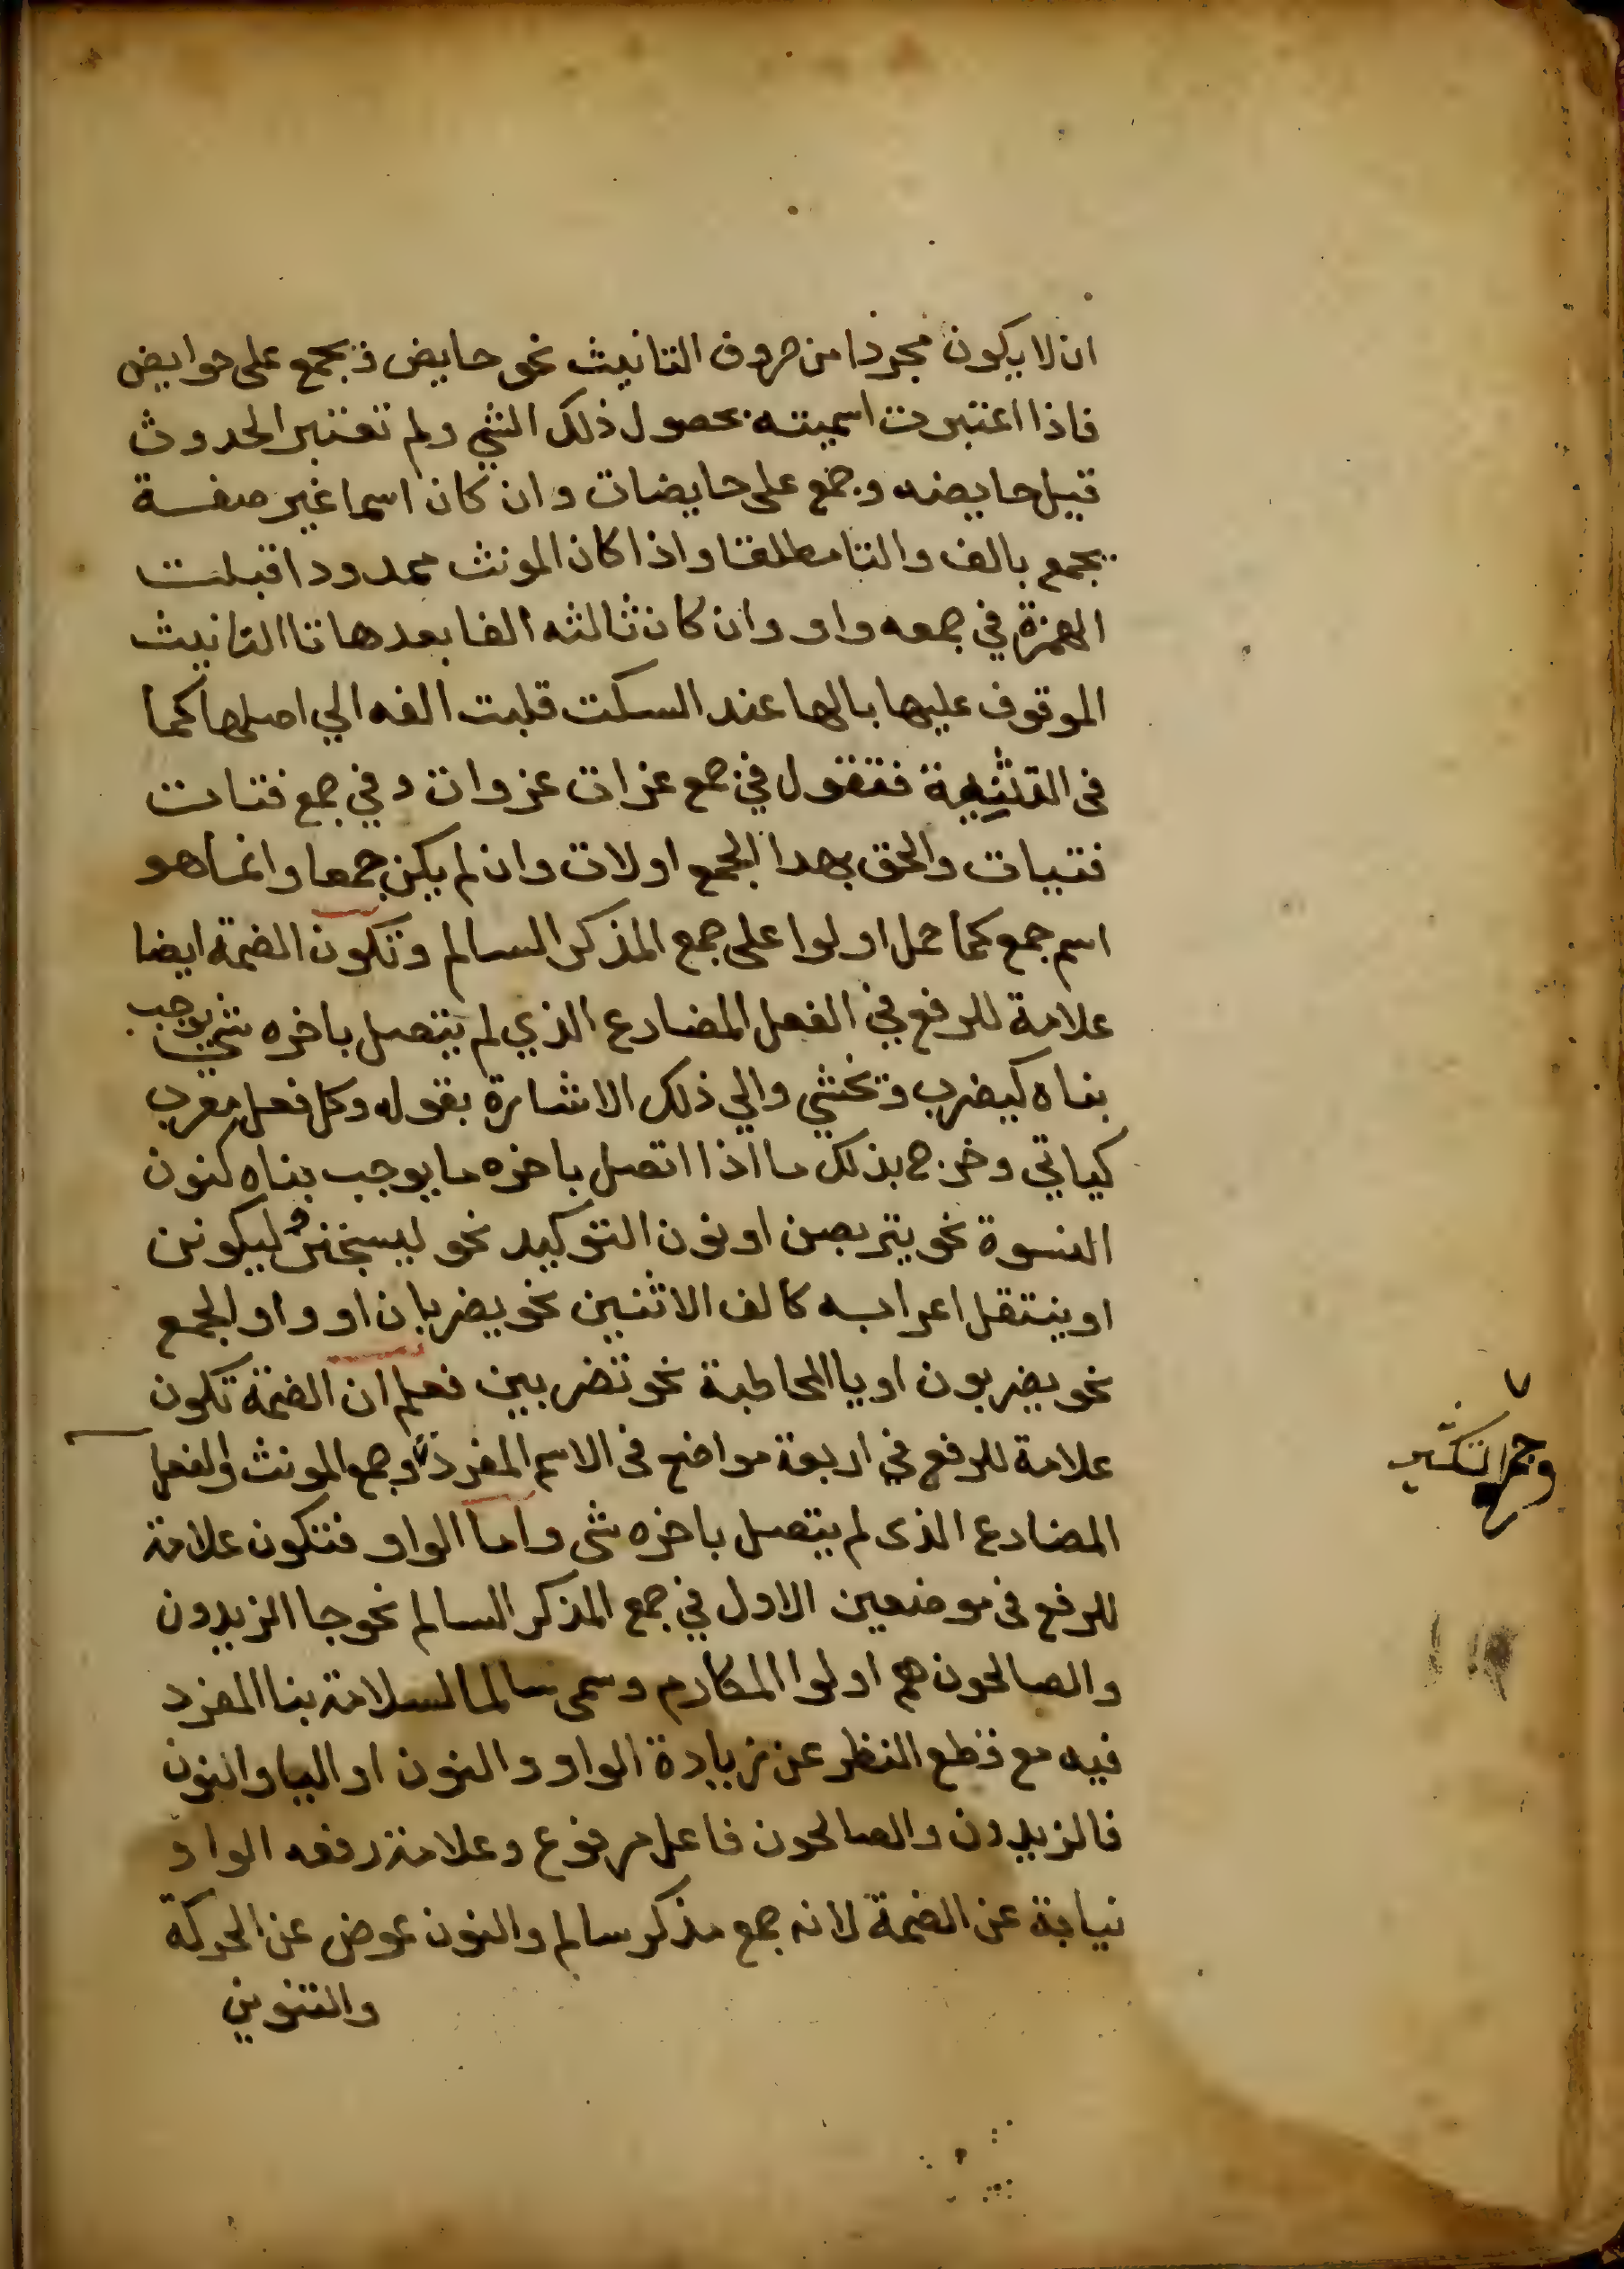 ان لا يكون مجردا من حروف التانيث نحو حايض فيجمع على حوايض
فاذا اعتبرت اسميته بحصول ذلك الشي ولم تعتبر الحدوث
قيل حايضه وجمع على حايضات وان كان اسما غير صفة
يجمع بالف والتا مطلقا واذا كان المونث ممدودا قبلت
الهمزة في جمعه واو وان كان ثالثه الفا بعدها تا التانيث
الموقوف عليها بالها عند السكت قلبت الفه الي اصلها كما
فى التثنية فتقول في جمع غزات غزوات وفي جمع فتات
فتيات والحق بهدا الجمع اولات وان لم يكن جمعا وانما هو
اسم جمع كما حمل اولوا على جمع المذكر السالم وتكون الضمة ايضا
علامة للرفع في الفعل المضارع الذي لم يتصل باخره شي يوجب
بناه كيضرب وتخشي والي ذلك الاشارة بقوله وكل فعل معرب
كياتي وخرج بذلك ما اذا اتصل باخره ما يوجب بناه كنون
النسوة نحو يتربصن او نون التوكيد نحو ليسجنن وليكونن
او ينتقل اعرابه كالف الاثنين نحو يضربان او واو الجمع
نحو يضربون او يا المخاطبة نحو تضربين فعلم ان الضمة تكون
علامة للرفع في اربعة مواضع فى الاسم المفرد وجمع المونث والفعل
وجمع التكسير
المضارع الذى لم يتصل باخره شى واما الواو فتكون علامة
للرفع فى موضعين الاول في جمع المذكر السالم نحو جا الزيدون
والصالحون هم اولوا المكارم وسمى سالما لسلامة بنا المفرد
فيه مع قطع النظر عن زيادة الواو والنون او اليا والنون
فالزيدون والصالحون فاعل مرفوع وعلامة رفعه الواو
نيابة عن الضمة لانه جمع مذكر سالم والنون عوض عن الحركة
والتنوين